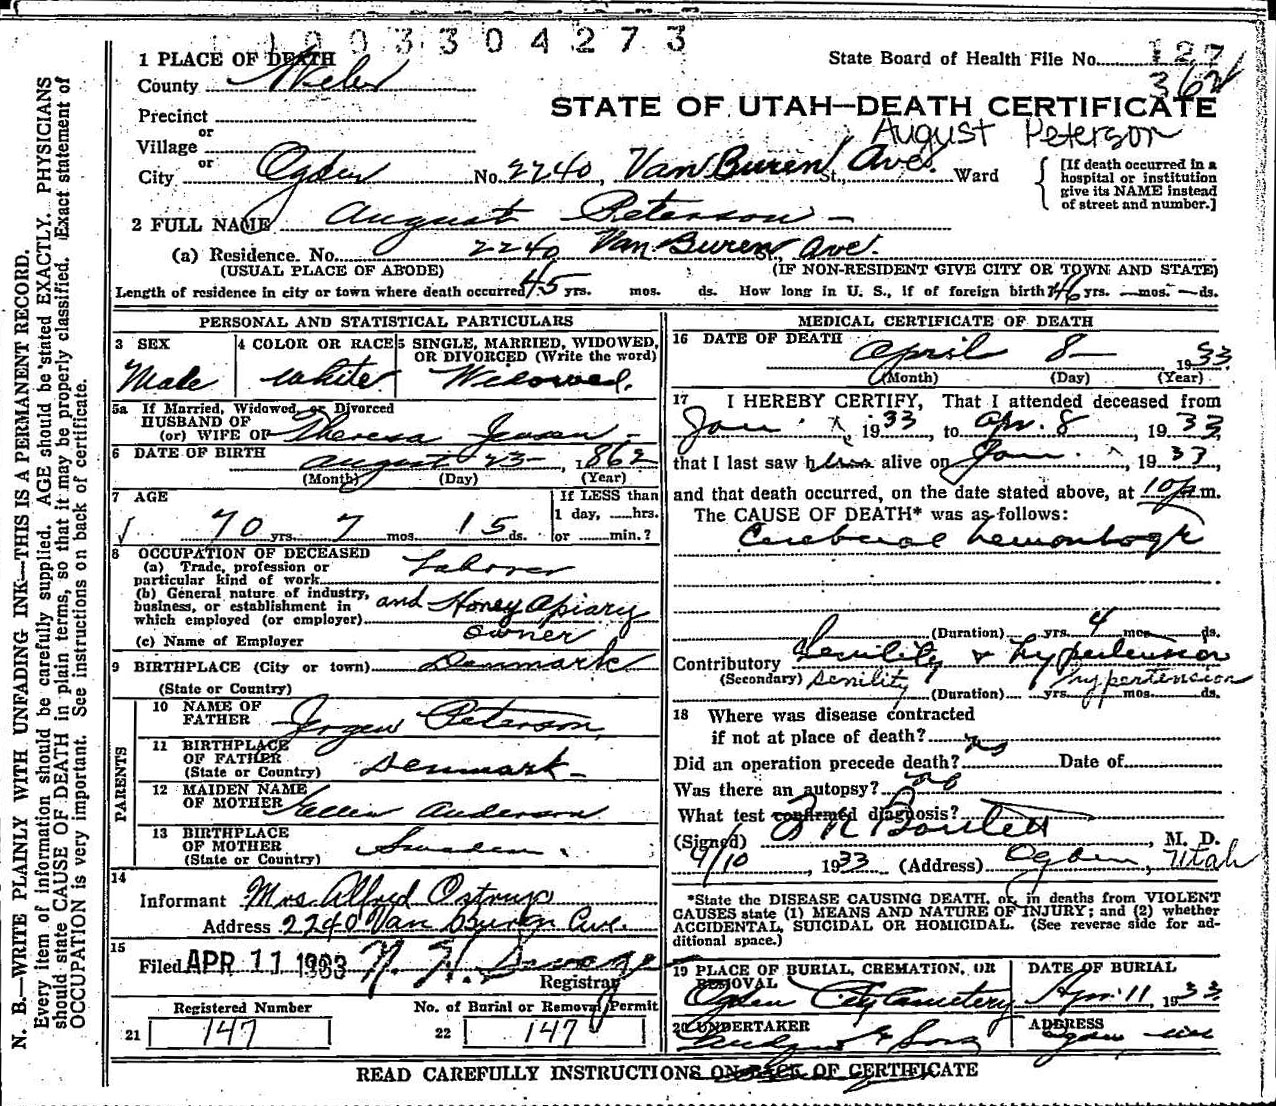 1003304273
1 PLACE OF DEATH
State Board of Health File No. 127
362
County Weber
STATE OF UTAH—DEATH CERTIFICATE
Precinct
August Peterson
or
Village
or
City Ogden No. 2240, Van Buren St., Ave. Ward
[If death occurred in a hospital or institution give its NAME instead of street and number.]
2 FULL NAME August Peterson
(a) Residence. No. 2240 Van Buren St., Ave.
(USUAL PLACE OF ABODE) (IF NON-RESIDENT GIVE CITY OR TOWN AND STATE)
Length of residence in city or town where death occurred 45 yrs. mos. ds. How long in U. S., if of foreign birth? 46 yrs. — mos. — ds.
PERSONAL AND STATISTICAL PARTICULARS
3 SEX 4 COLOR OR RACE 5 SINGLE, MARRIED, WIDOWED, OR DIVORCED (Write the word)
Male White Widowed.
5a If Married, Widowed, or Divorced
HUSBAND OF
(or) WIFE OF Theresa Jensen
6 DATE OF BIRTH August 23 - , 1862
(Month) (Day) (Year)
7 AGE If LESS than
70 yrs. 7 mos. 15 ds. 1 day, hrs.
or min.?
8 OCCUPATION OF DECEASED
(a) Trade, profession or
particular kind of work Laborer
(b) General nature of industry,
business, or establishment in
which employed (or employer) and Honey Apiary
owner
(c) Name of Employer
9 BIRTHPLACE (City or town) Denmark
(State or Country)
PARENTS
10 NAME OF
FATHER Jorgen Peterson
11 BIRTHPLACE
OF FATHER
(State or Country) Denmark
12 MAIDEN NAME
OF MOTHER Ellen Anderson
13 BIRTHPLACE
OF MOTHER
(State or Country) Sweden
14
Informant Mrs. Alfred Ostrup
Address 2240 Van Buren Ave.
15
Filed APR 11 1933
Registrar
Registered Number No. of Burial or Removal Permit
21 147 22 147
MEDICAL CERTIFICATE OF DEATH
16 DATE OF DEATH April 8 - 1933
(Month) (Day) (Year)
17 I HEREBY CERTIFY, That I attended deceased from
Jan. 1933, to Apr. 8, 1933
that I last saw him alive on Jan. , 1933,
and that death occurred, on the date stated above, at 10 p.m.
The CAUSE OF DEATH* was as follows:
Cerebral hemorrhage
(Duration) yrs. 4 mos. ds.
Contributory Senility & Hypertension
(Secondary) Senility Hypertension
(Duration) yrs. mos. ds.
18 Where was disease contracted
if not at place of death?
Did an operation precede death? no Date of
Was there an autopsy? no
What test confirmed diagnosis?
(Signed) , M. D.
4/10, 1933 (Address) Ogden, Utah
*State the DISEASE CAUSING DEATH, or, in deaths from VIOLENT
CAUSES state (1) MEANS AND NATURE OF INJURY; and (2) whether
ACCIDENTAL, SUICIDAL OR HOMICIDAL. (See reverse side for ad-
ditional space.)
19 PLACE OF BURIAL, CREMATION, OR DATE OF BURIAL
REMOVAL
Ogden City Cemetery Apr. 11, 1933
20 UNDERTAKER ADDRESS
& Sons Ogden
READ CAREFULLY INSTRUCTIONS ON BACK OF CERTIFICATE
N. B.—WRITE PLAINLY WITH UNFADING INK—THIS IS A PERMANENT RECORD.
Every item of information should be carefully supplied. AGE should be stated EXACTLY. PHYSICIANS
should state CAUSE OF DEATH in plain terms, so that it may be properly classified. Exact statement of
OCCUPATION is very important. See instructions on back of certificate.